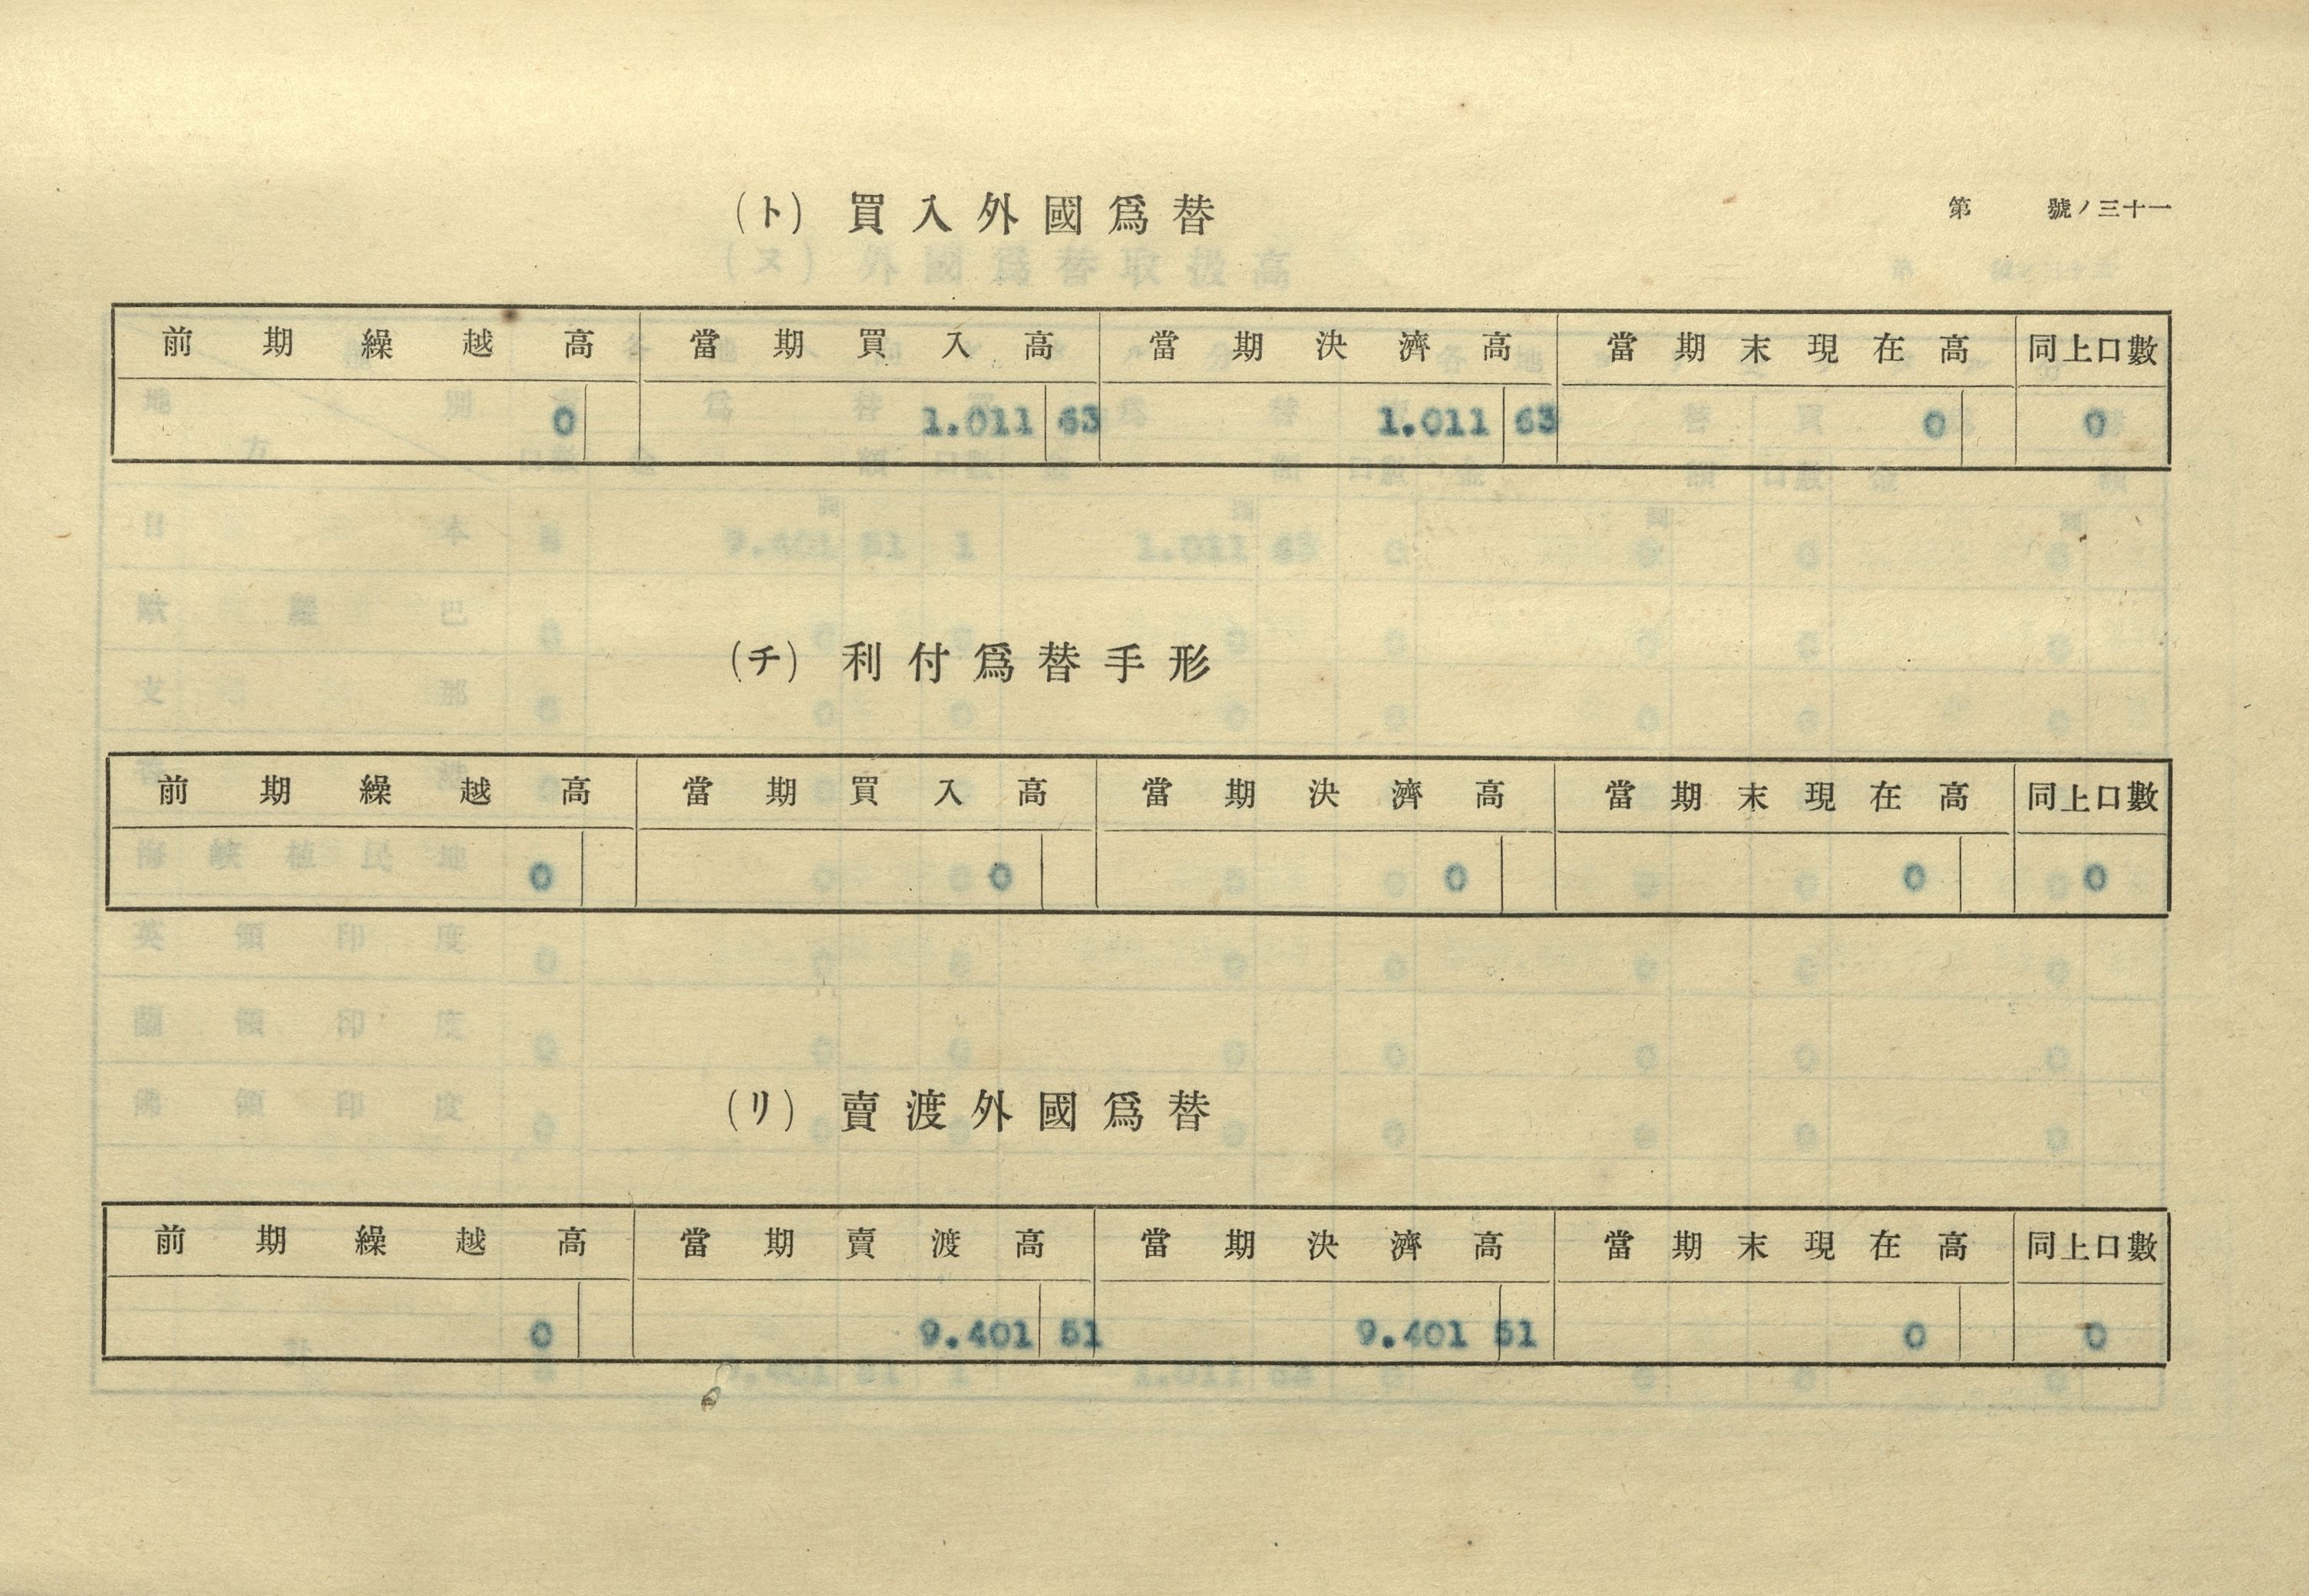 第 號ノ三十一
(ト) 買入外國爲替
前期繰越高 當期買入高 當期決濟高 當期末現在高 同上口數
0 1.011 63 1.011 63 0 0
(チ) 利付爲替手形
前期繰越高 當期買入高 當期決濟高 當期末現在高 同上口數
0 0 0 0 0
(リ) 賣渡外國爲替
前期繰越高 當期賣渡高 當期決濟高 當期末現在高 同上口數
0 9.401 51 9.401 51 0 0